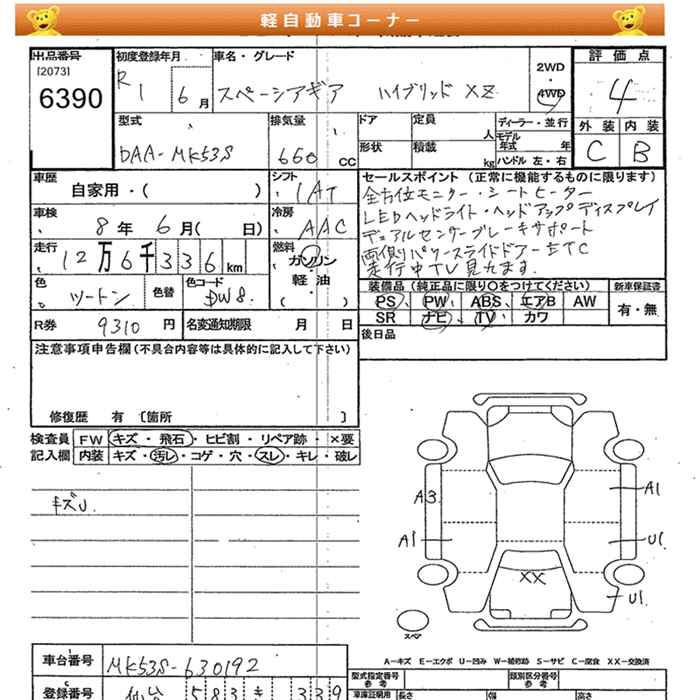 軽自動車コーナー
出品番号
[2073]
6390
初度登録年月
R1 6月
車名・グレード
スペーシアギア ハイブリッド XZ
2WD
・
4WD
評価点
4
外装 内装
C B
型式
DAA-MK53S
排気量
660 CC
ドア
定員
人
形状
積載
kg
ディーラー・並行
モデル年式
年
ハンドル 左・右
車歴
自家用・( )
シフト
IAT
車検
8年 6月( 日)
冷房
AAC
走行
12万6千336km
燃料
ガソリン
・
軽油
色
ツートン
色替
色コード
DW8.
R券
9310円
名変通知期限 月 日
セールスポイント(正常に機能するものに限ります)
全方位モニター・シートヒーター
LEDヘッドライト・ヘッドアップディスプレイ
デュアルセンサーブレーキサポート
両側パワースライドドアーETC
走行中TV見れます.
装備品(純正品に限り○をつけてください)
新車保証書
PS、PW、ABS、エアB AW
SR ナビ TV カワ
有・無
後日品
注意事項申告欄(不具合内容等は具体的に記入して下さい)
修復歴 有 〔箇所 〕
検査員
記入欄
FW キズ・飛石・ヒビ割・リペア跡・×要
内装 キズ・汚レ・コゲ・穴・スレ・キレ・破レ
キズU
A3
A1
A1
U1
U1
XX
スペア
A-キズ E-エクボ U-凹み W-補修跡 S-サビ C-腐食 XX-交換済
車台番号
MK53S-630192
登録番号
仙台 583 き 339
型式指定番号
参考
類別区分番号
参考
車庫証明用
長さ
幅
高さ